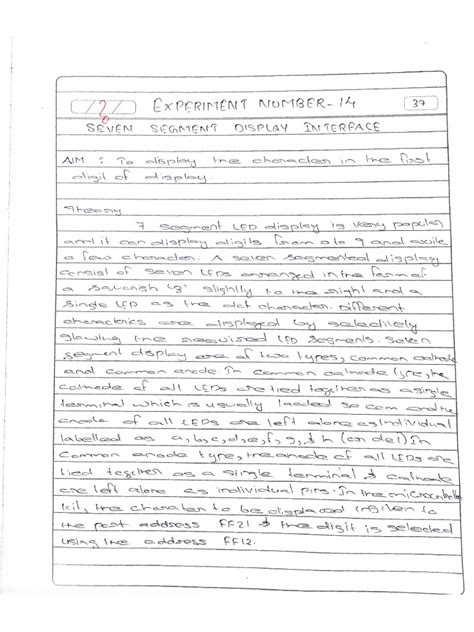 EXPERIMENT NUMBER-14 37
SEVEN SEGMENT DISPLAY INTERFACE
AIM : To display the character in the first
digit of display.
Theory
7 segment LED display is very popular
and it can display digits from 0 to 9 and quite
a few character. A seven segmented display
consist of seven LEDs arranged in the form of
a squarish '8' slightly to the right and a
single LED as the dot character. Different
characterics are displayed by selectively
glowing the required LED segments. Seven
segment display are of two types, common cathode
and common anode. In common cathode type, the
cathode of all LEDs are tied together as a single
terminal which is usually and the
anode of all LEDs are left alone as individual
labelled as a, b, c, d, e, f, g, & h (or dot) In
common anode type, the anode of all LEDs are
tied together as a single terminal & cathode
are left alone as individual pins. In the
kit, the character to be displaced is given to
the port address FF21 & the digit is selected
using the address FF12.